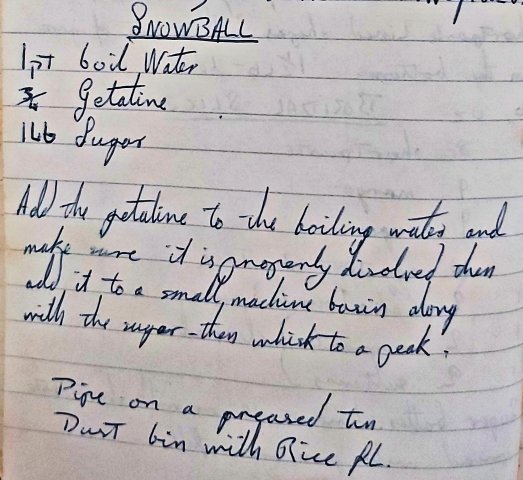 SNOWBALL
1 PT boil Water
3/4 Getatine
1 Lb Sugar
Add the getatine to the boiling water and
make sure it is properly disolved then
add it to a small machine basin along
with the sugar - then whisk to a peak.
Pipe on a greased tin
Dust bin with Rice FL.